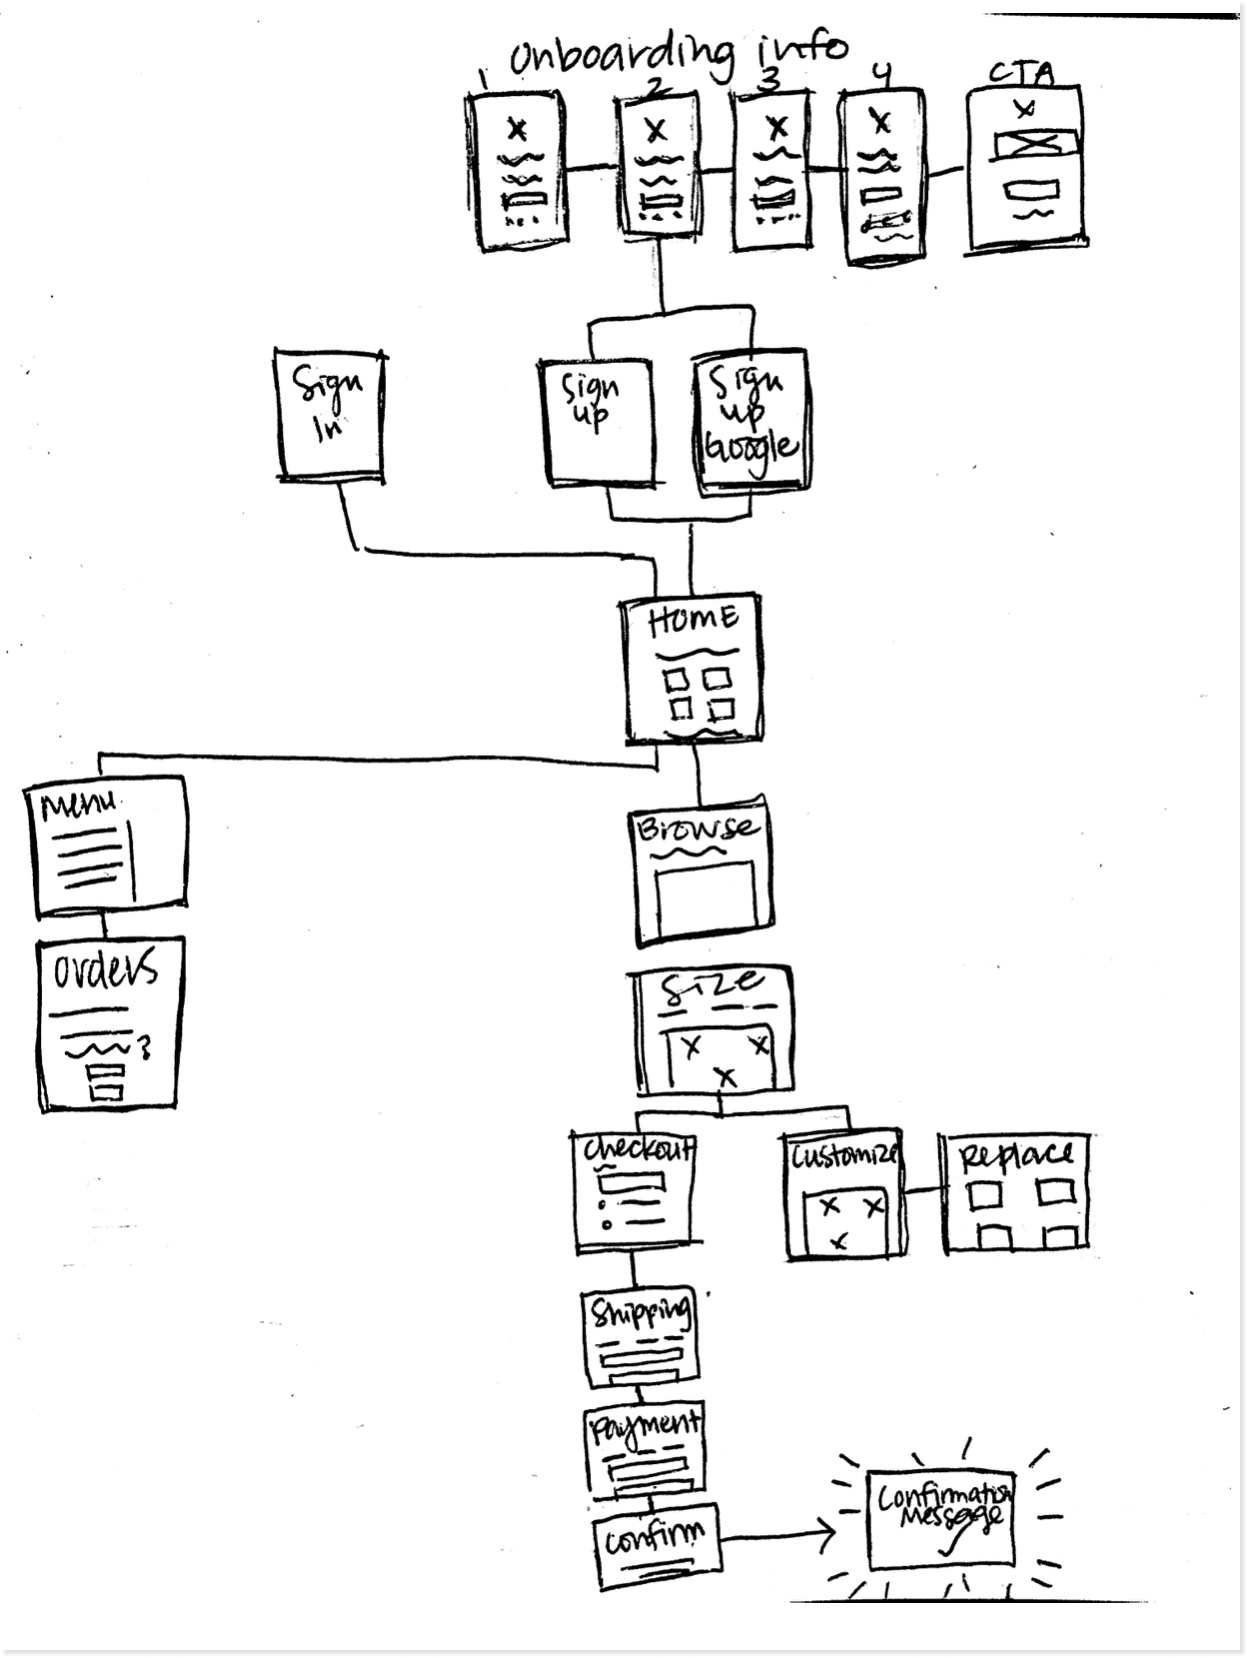 Onboarding info
1
2
3
4
CTA
Sign
In
Sign
up
Sign
up
Google
HOME
Menu
Browse
Orders
Size
Checkout
Customize
Replace
Shipping
Payment
Confirm
Confirmation
Message